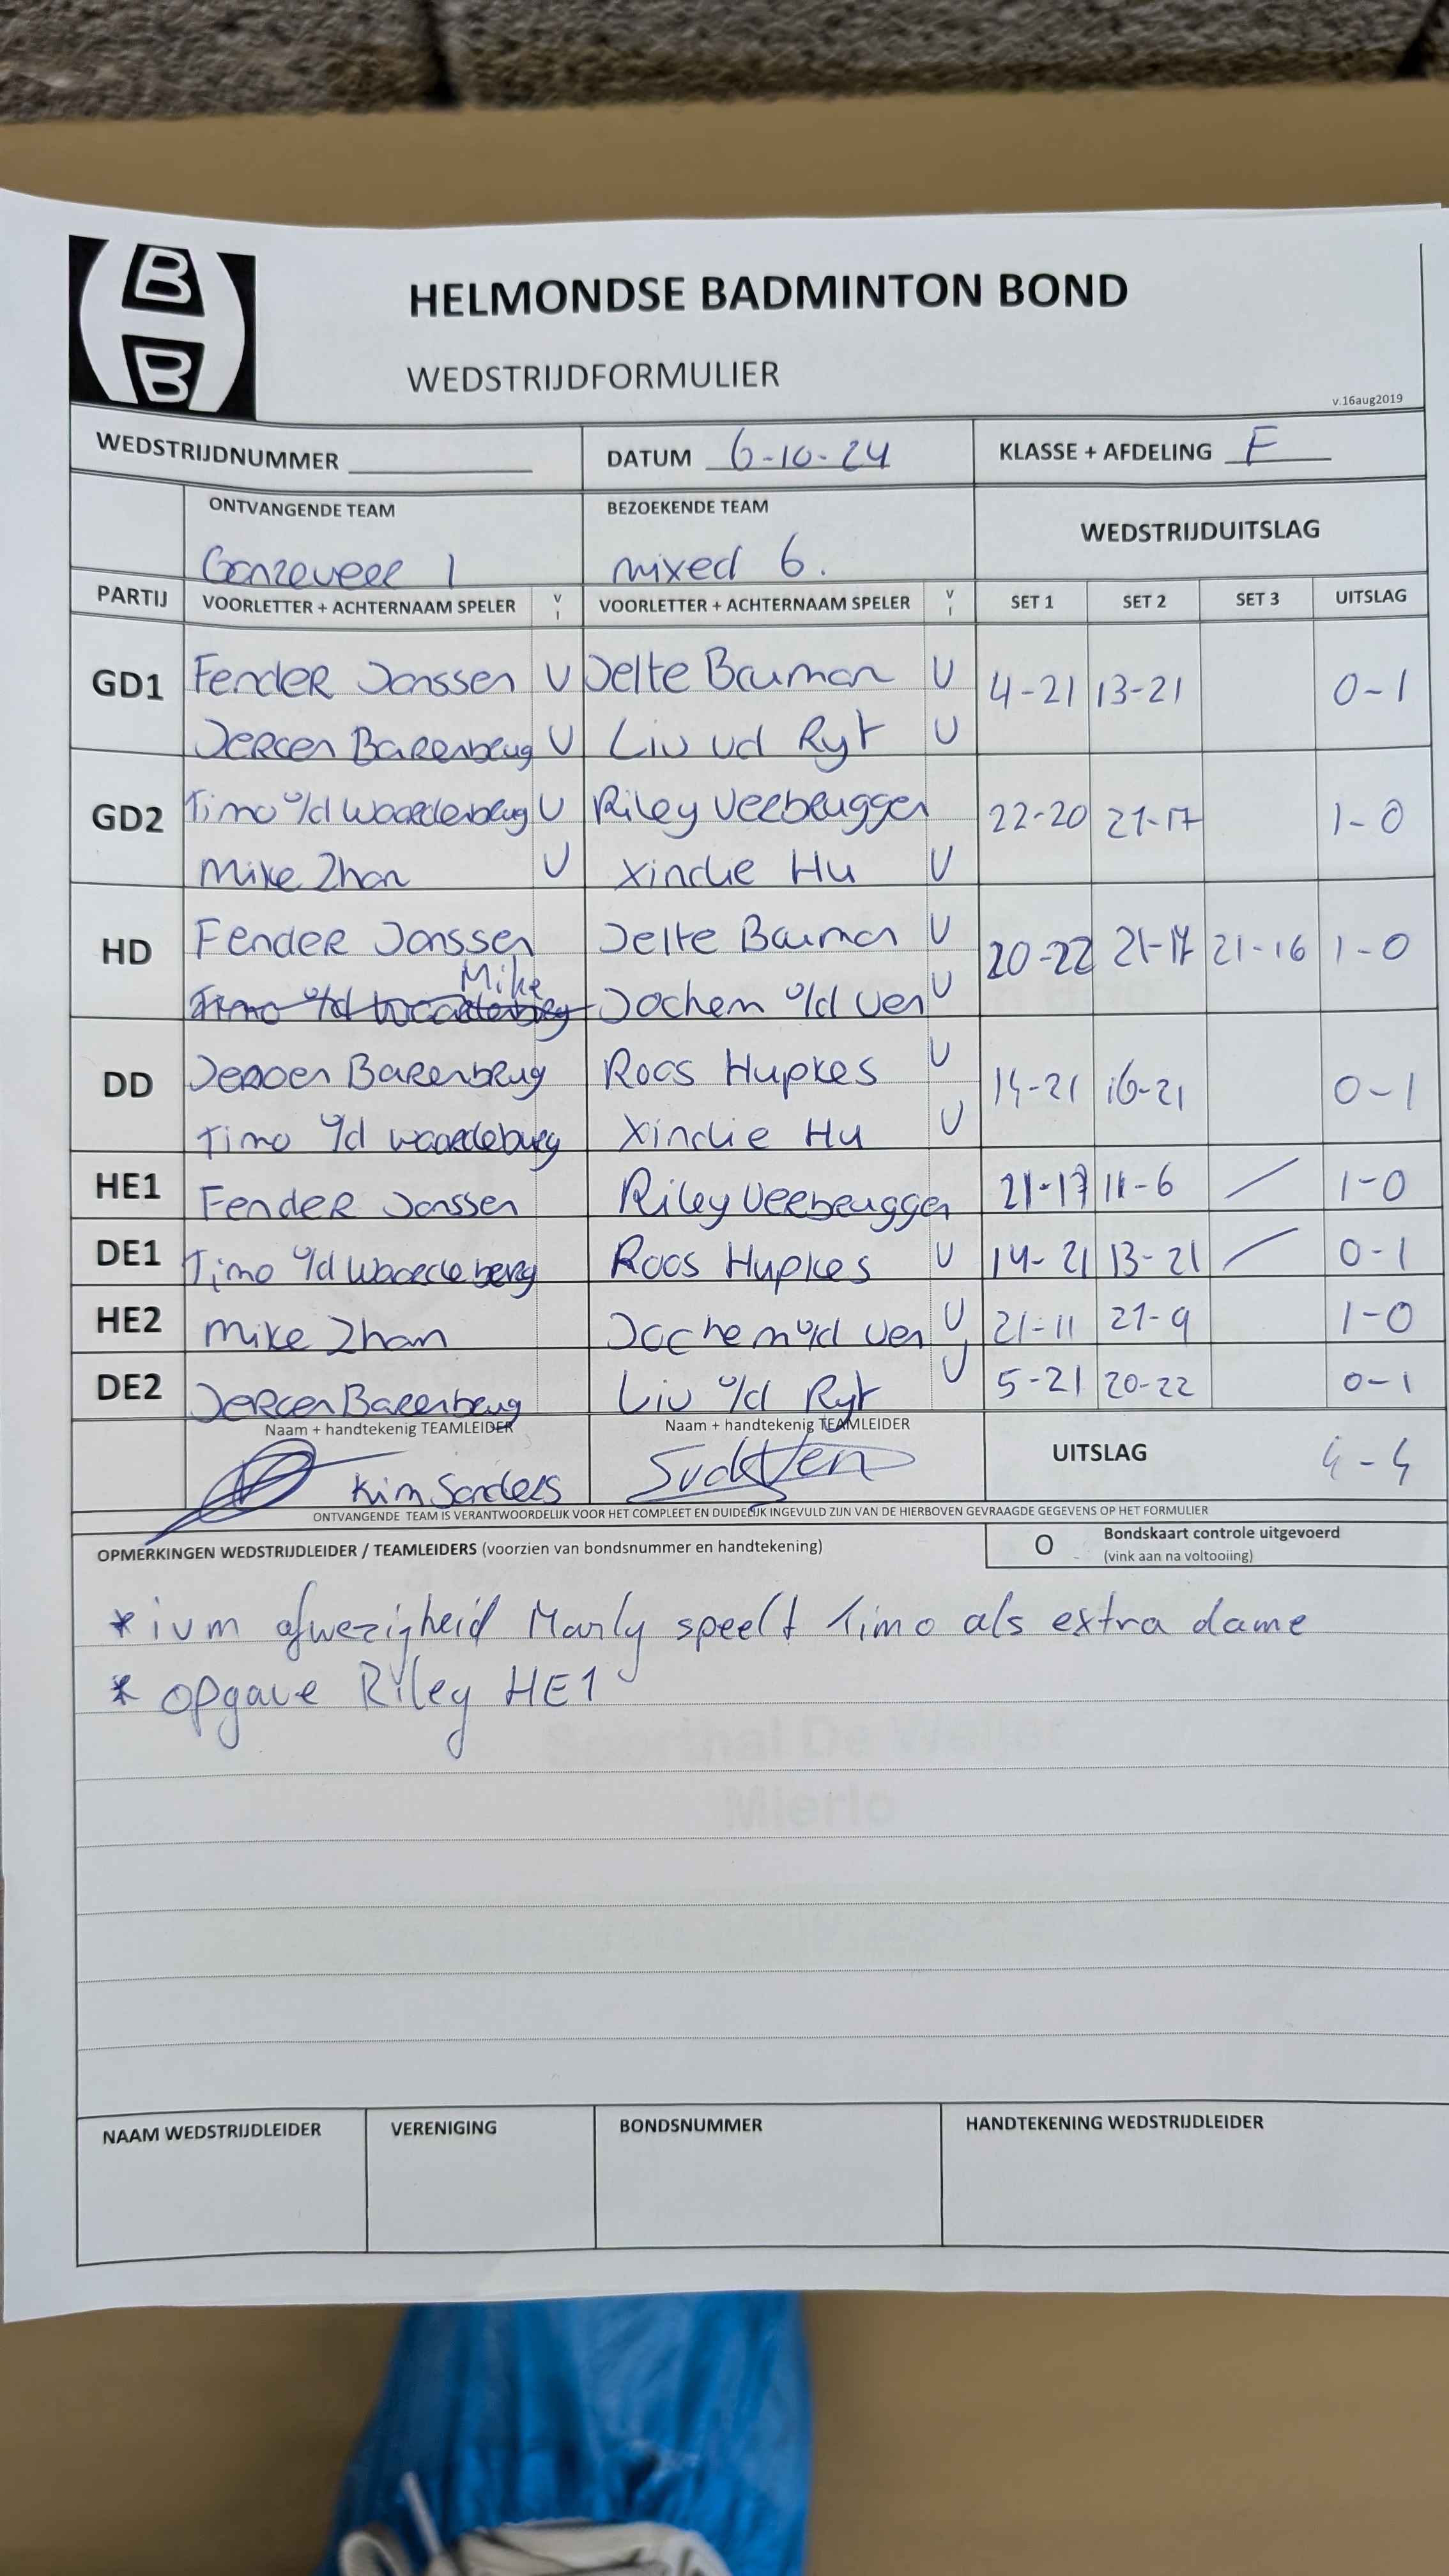 B
B
HELMONDSE BADMINTON BOND
WEDSTRIJDFORMULIER
v.16aug2019
WEDSTRIJDNUMMER
DATUM 6-10-24
KLASSE + AFDELING F
ONTVANGENDE TEAM
BEZOEKENDE TEAM
WEDSTRIJDUITSLAG
Ganzeveer 1
mixed 6.
PARTIJ VOORLETTER + ACHTERNAAM SPELER V I VOORLETTER + ACHTERNAAM SPELER V I SET 1 SET 2 SET 3 UITSLAG
GD1 Fender Janssen V Jelte Bauman V 4-21 13-21 0-1
Jeroen Barenbrug V Liv vd Ryt V
GD2 Timo v/d Waardenburg V Riley Verbruggen 22-20 21-17 1-0
Mike Zhan V Xindie Hu V
HD Fender Janssen Jelte Bauman V 20-22 21-17 21-16 1-0
Mike
Timo v/d Waardenburg Jochem v/d Ven V
DD Jeroen Barenbrug Roos Hupkes V 14-21 16-21 0-1
Timo v/d Waardeburg Xindie Hu V
HE1 Fender Janssen Riley Verbruggen 21-17 11-6 / 1-0
DE1 Timo v/d Waardeberg Roos Hupkes V 14-21 13-21 / 0-1
HE2 Mike Zhan Jochem v/d Ven V 21-11 21-9 1-0
DE2 Jeroen Barenbrug Liv v/d Ryt V 5-21 20-22 0-1
Naam + handtekenig TEAMLEIDER
Naam + handtekenig TEAMLEIDER
UITSLAG 4-4
Kim Sanders
ONTVANGENDE TEAM IS VERANTWOORDELIJK VOOR HET COMPLEET EN DUIDELIJK INGEVULD ZIJN VAN DE HIERBOVEN GEVRAAGDE GEGEVENS OP HET FORMULIER
OPMERKINGEN WEDSTRIJDLEIDER / TEAMLEIDERS (voorzien van bondsnummer en handtekening)
O Bondskaart controle uitgevoerd
(vink aan na voltooiing)
* ivm afwezigheid Marly speelt Timo als extra dame
* opgave Riley HE1
Sporthal De Weijer
Mierlo
NAAM WEDSTRIJDLEIDER
VERENIGING
BONDSNUMMER
HANDTEKENING WEDSTRIJDLEIDER